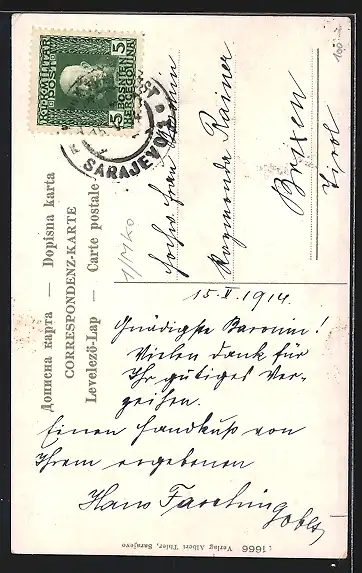 Дописна карта — Dopisna karta
CORRESPONDENZ-KARTE
Levelező-Lap — Carte postale
5 BOSNIEN HERCEGOVINA 5
SARAJEVO 1
Hochw. Frau
Raymonda Rainer
Brixen
Tyrol
15. V. 1914.
Gnädigste Baronin!
Vielen Dank für
Ihr gütiges Ver-
zeihen.
Einen Handkuß von
Ihrem ergebenen
Hans
Oblt
1666 Verlag Albert Thier, Sarajevo
100